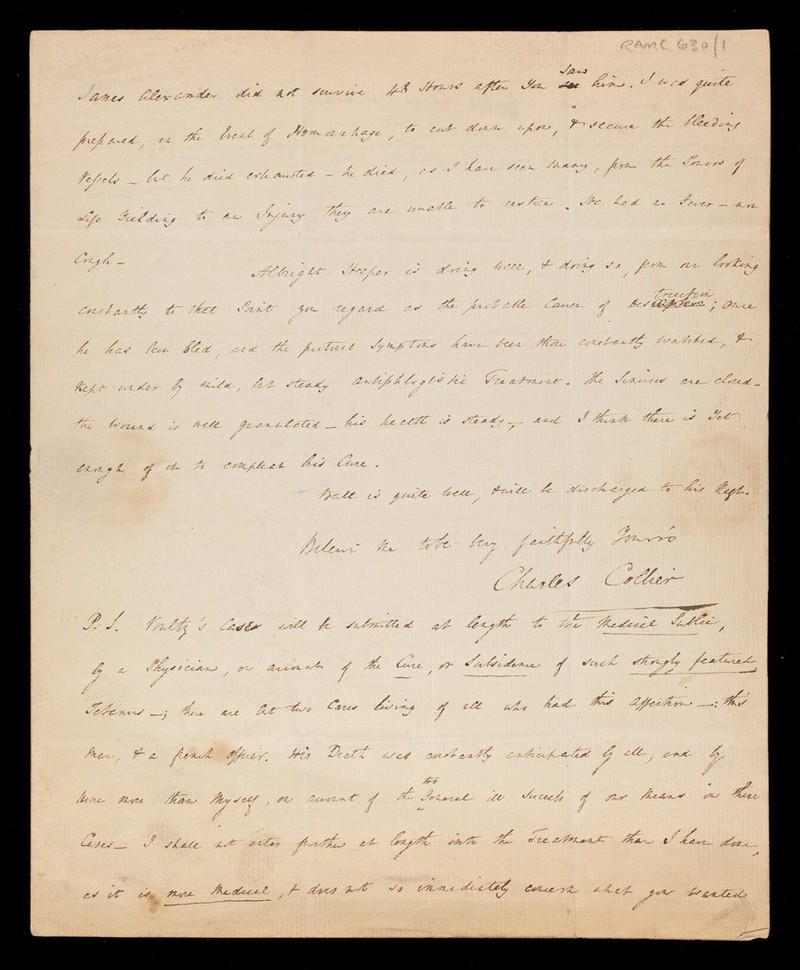 RAMC 630/1
James Alexander did not survive 48 Hours after You saw him. I was quite
prepared, in the event of Hemorrhage, to cut down upon, & secure the bleeding
Vessels – but he died exhausted – he died, as I have seen many, from the Powers of
Life Yielding to an Injury they are unable to restore. He had no Fever – nor
Cough –
Albright Heeper is doing well, & doing so, from our looking
constantly to that Point you regard as the probable Cause of ; once
he has been bled, and the pectoral Symptoms have been then constantly watched, &
Kept under by mild, but steady antiphlogistic Treatment. The Sinuses are closed –
the wound is well granulated – his health is steady –, and I think there is Yet
enough of it to compleat his Cure.
Ball is quite well, & will be discharged to his Regt.
Believe me to be very faithfully Yours
Charles Collier
P.S. Voultz's Case will be submitted at length to the Medical Public,
by a Physician, on account of the Cure, or Subsidence of such strongly featured
Tetanus –; there are but two Cases living of all who had this affection –: this
Man, & a french officer. His Death was constantly anticipated by all, and by
none more than Myself, on account of the too General ill Success of our Means in these
Cases – I shall not enter further at length into the Treatment than I have done,
as it is more Medical, & does not so immediately concern what you wanted